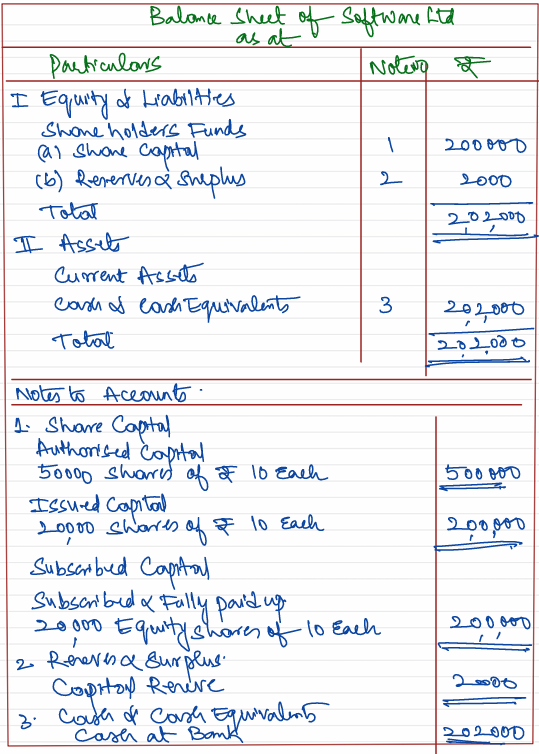 Balance Sheet of Software Ltd
as at
Particulars Note no ₹
I Equity & Liabilities
Share holders Funds
(a) Share Capital 1 200000
(b) Reserves & Surplus 2 2000
Total 2,02,000
II Assets
Current Assets
Cash & Cash Equivalents 3 2,02,000
Total 2,02,000
Notes to Accounts.
1. Share Capital
Authorised Capital
50000 Shares of ₹ 10 Each 500000
Issued Capital
20,000 Shares of ₹ 10 Each 2,00,000
Subscribed Capital
Subscribed & Fully paid up
20,000 Equity shares of 10 Each 2,00,000
2 Reserves & Surplus.
Capital Reserve 2000
3. Cash & Cash Equivalents
Cash at Bank 202000